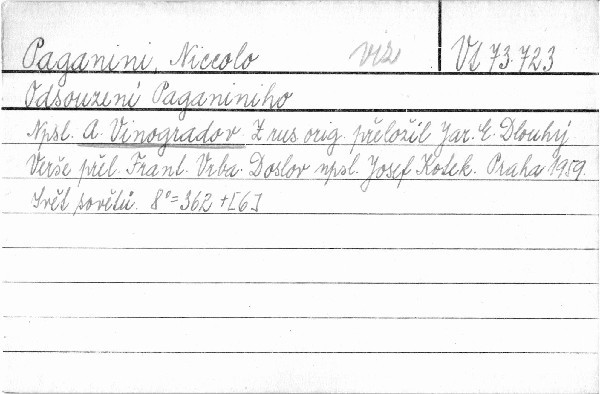 Paganini, Niccolo viz Vl 73.723
Odsouzení Paganiniho
Npsl. A. Vinogradov. Z rus. orig. přeložil Jar. E. Dlouhý
Verše přel. Frant. Vrba. Doslov npsl. Josef Kotek. Praha 1959.
Svět sovětů. 8°= 362 + [6]